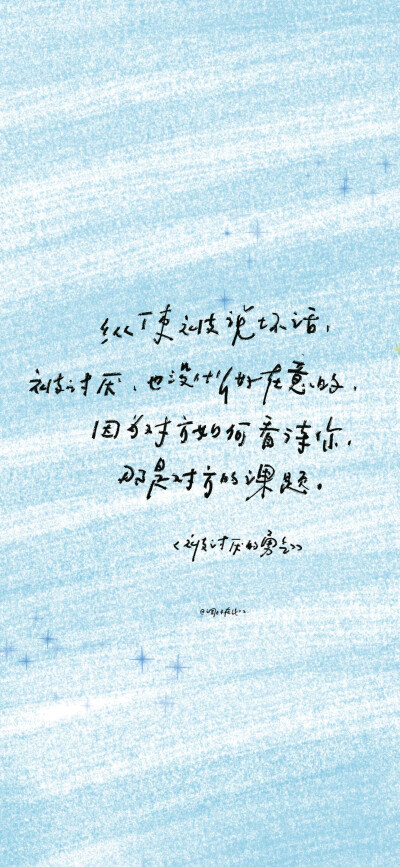 纵使被说坏话，
被讨厌，也没什么好在意的，
因为对方如何看待你，
那是对方的课题。
《被讨厌的勇气》